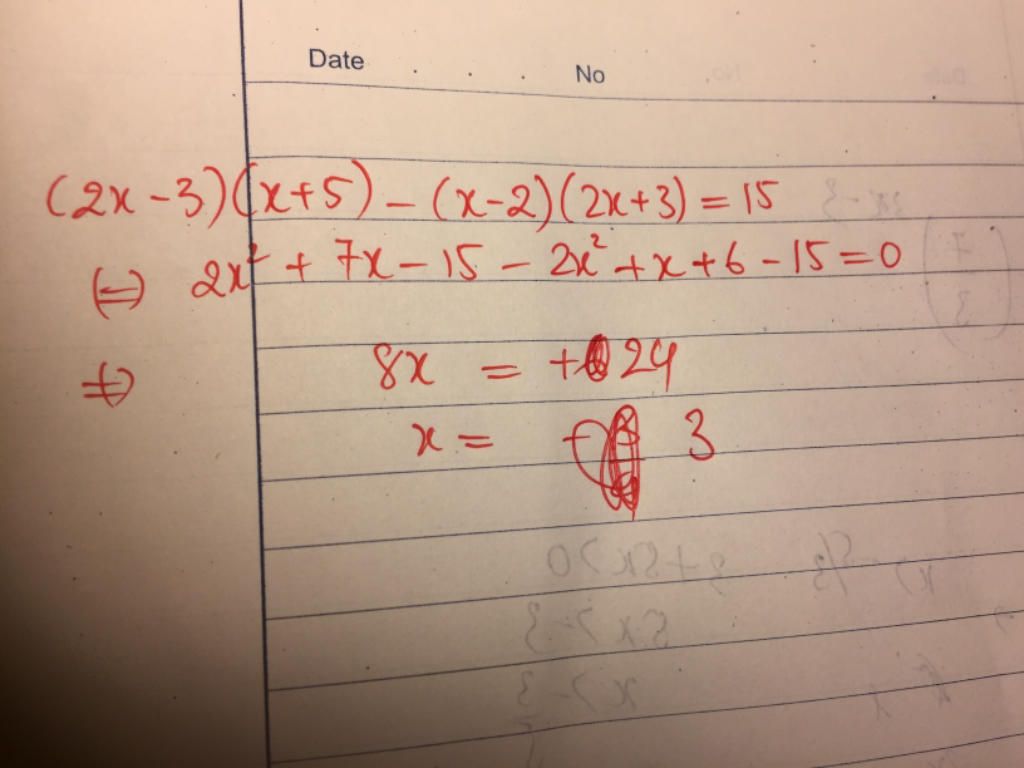 Date . . . No
(2x-3)(x+5) - (x-2)(2x+3) = 15
(=) 2x² + 7x - 15 - 2x² + x + 6 - 15 = 0
8x = + 24
x = 3